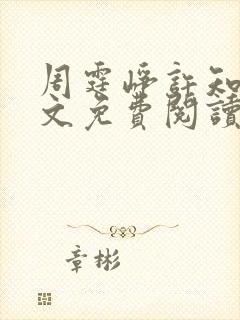 周霆峥許知
文免費閱讀
章彬